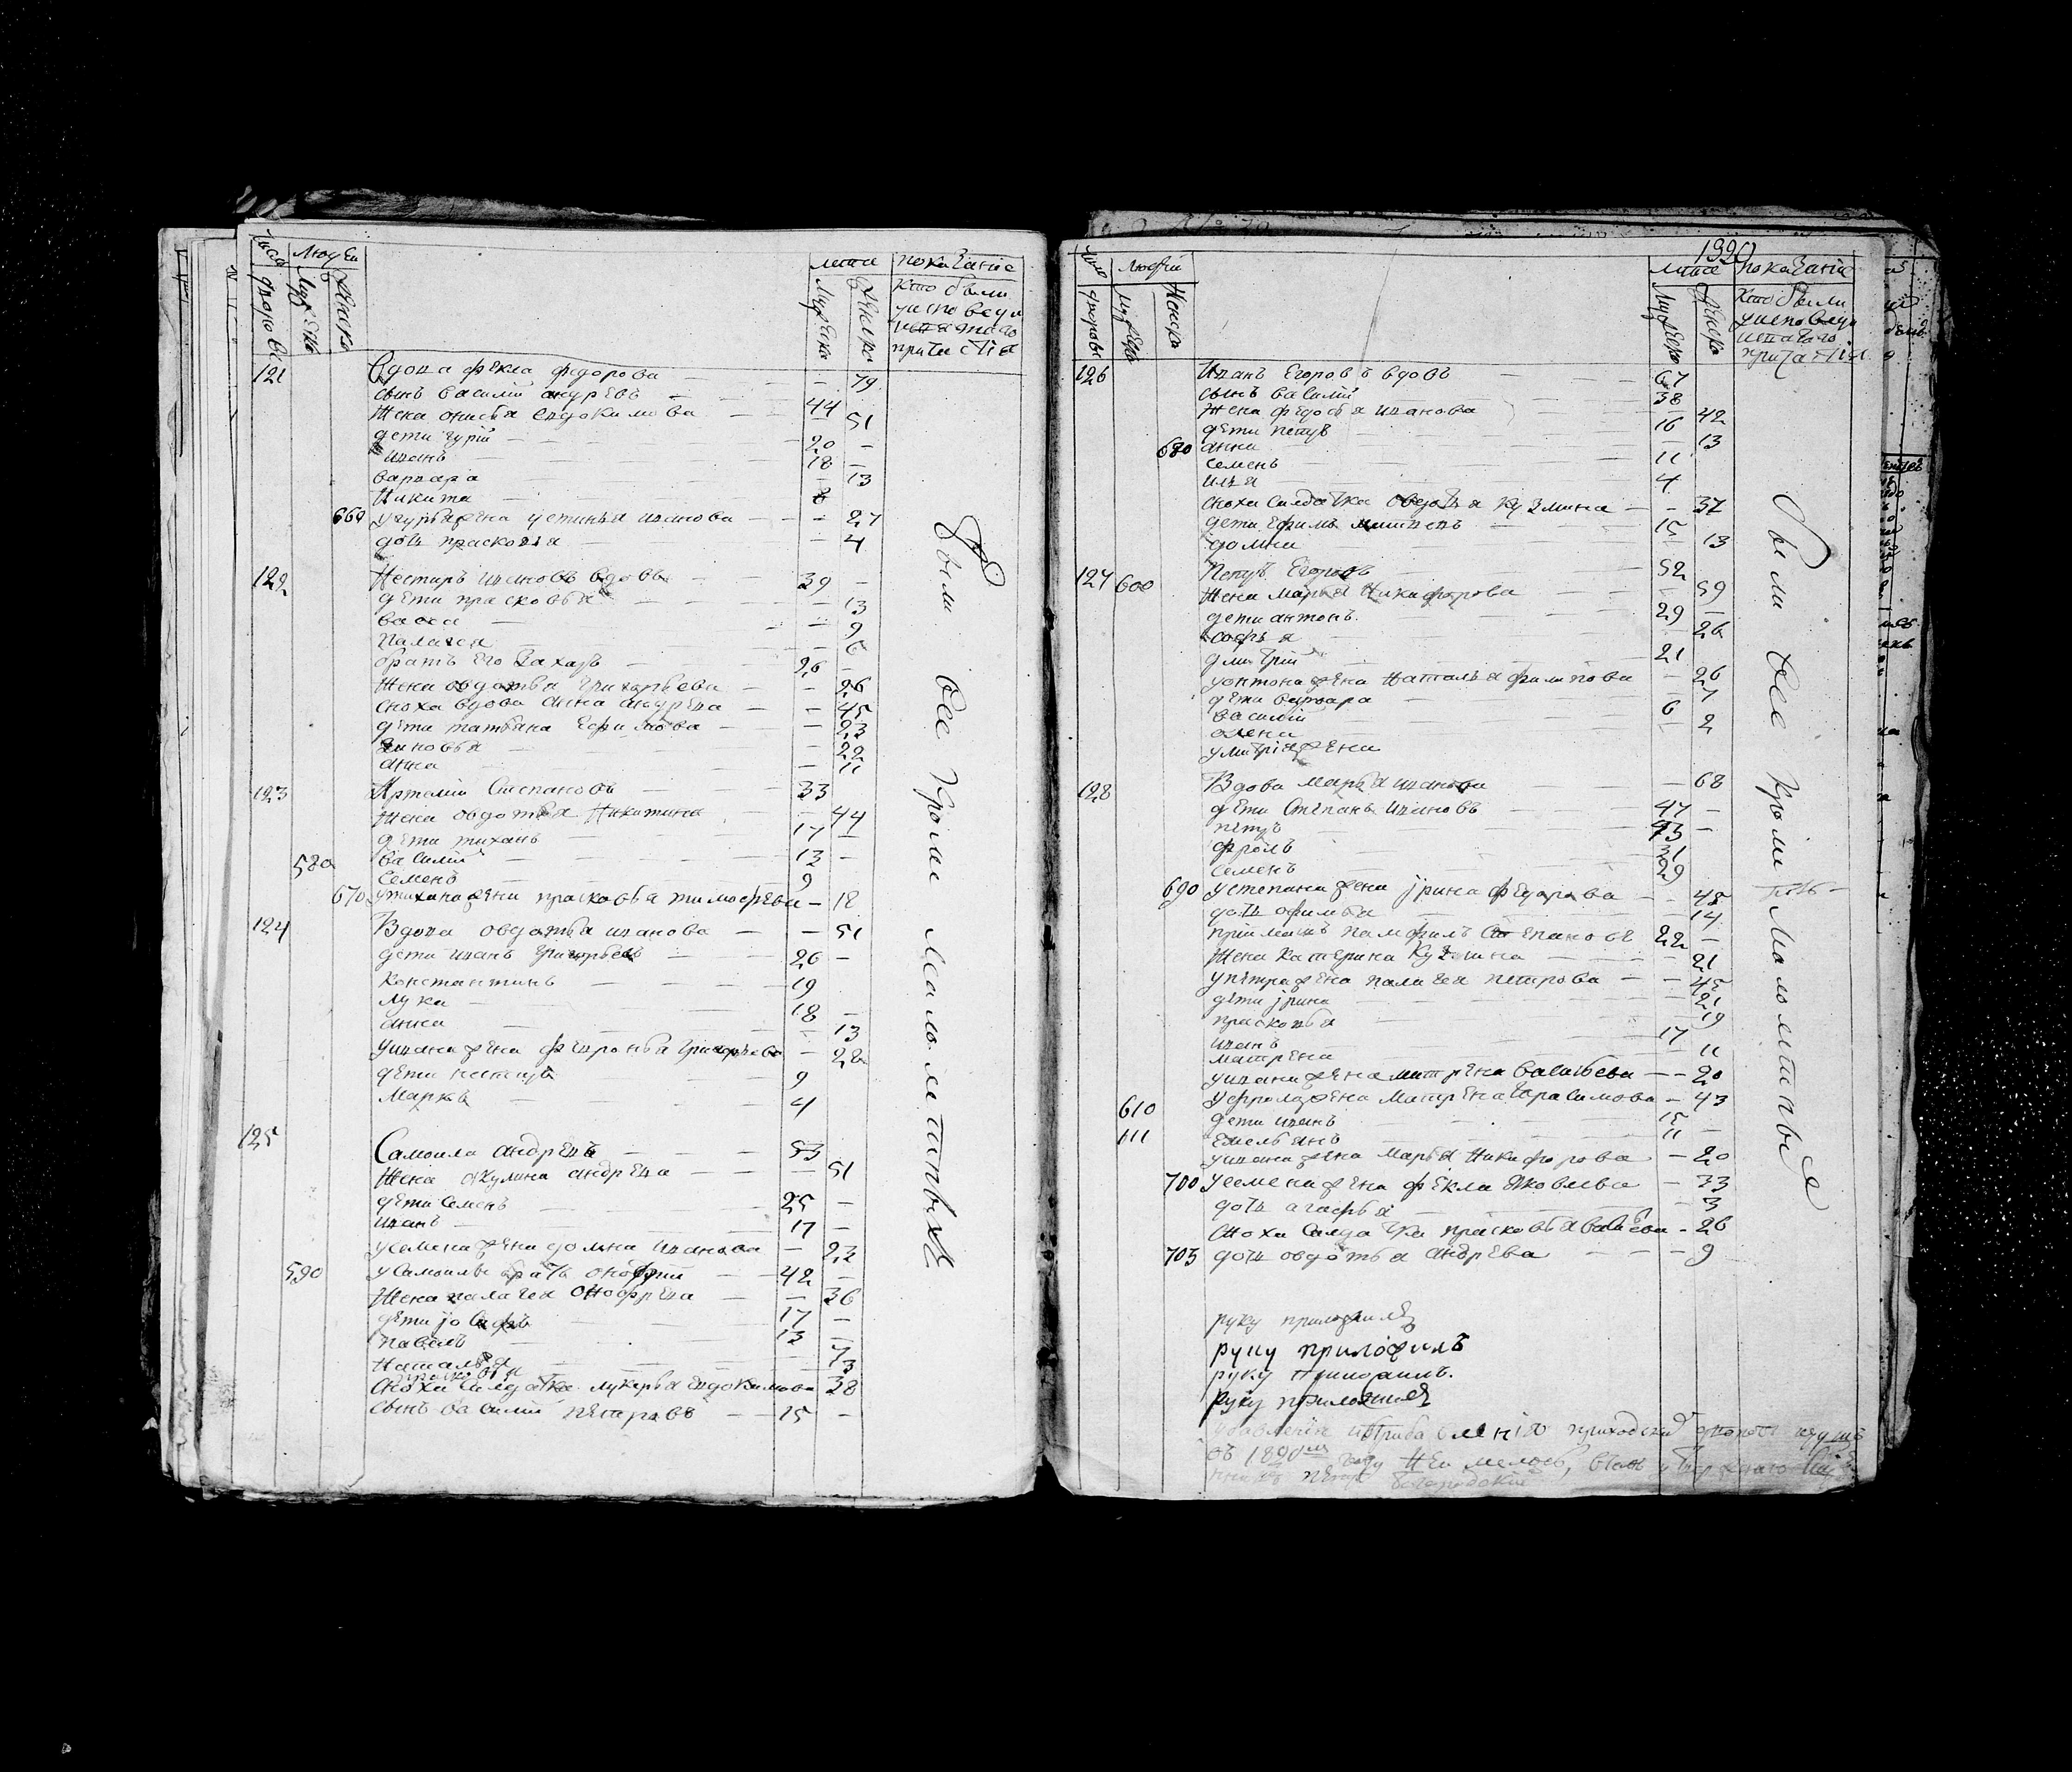 число людей лета показание
дворовъ мужеска женска мужеска женска кто были у исповеди и святаго причастия
121 Вдова фекла федорова — 79
сынъ василий андреевъ 44
жена анисья евдокимова — 51
дети гурий 20 —
иванъ 18 —
варвара — 13
Никита 8
660 у гурья жена устинья иванова — 27
дочь прасковья — 4
122 Нестиръ ивановъ вдовъ 39 —
дети прасковья — 13
васса — 9
Палагея — 6
братъ его Захаръ 26 —
жена овдотья григорьева — 26
сноха вдова анна андреева — 45
дети татьяна Ефимова — 23
зиновья — 22
анна — 11
123 Артемий Степановъ 33
жена овдотья Никитина — 44
дети тиханъ 17 —
580 василий 13 —
Семенъ 9
670 у тихана жена прасковья тимофеева — 18
124 Вдова овдотья иванова — 51
дети иванъ григорьевъ 26 —
константинъ 19
лука 18 —
анна — 13
у ивана жена февронья григорьева — 22
дети 9
Маркъ 4
125 Самоила андреевъ 53
жена акулина андреева — 51
дети Семенъ 25 —
иванъ 17 —
у семена жена домна иванова — 23
590 у самоилы братъ онофрий 42 —
жена палагея — 36
дети иосифъ 17 —
павелъ 13 —
наталья 7
прасковья 3
Сноха Салдатка лукерья евдокимова 38
сынъ василий петровъ 15 —
были все кроме малолетныхъ
1990
число людей лета показание
дворовъ мужеска женска мужеска женска кто были у исповеди и святаго причастия
126 Иванъ Егоровъ вдовъ 67
сынъ василий 38
жена федосья иванова — 42
дети петръ 16
680 анна — 13
семенъ 11
илья 4
сноха салдатка овдотья кузмина — 37
дети Ефимъ 15
домна — 13
127 600 Петръ Егоровъ 52
жена марья Никифорова — 59
дети антонъ 29 —
софья — 26
дмитрий 21
у онтона жена Наталья филипова — 26
дети варвара — 7
василий 6
олена — 2
у митрия жена
128 Вдова марья иванова — 68
дети Степанъ ивановъ 47
петръ 43 —
фролъ 31
семенъ 29
690 у степана жена ирина федорова — 48
дочь офимья — 14
приимышъ памфилъ Степановъ 22 —
жена катерина кузмина — 21
у петра жена палагея петрова — 45
дети ирина 21
прасковья 19
иванъ 17
матрена 11
у ивана жена матрена васильева — 20
610 у фрола жена матрена Герасимова — 43
дети иванъ 15
611 Емельянъ 11 —
у ивана жена марья Никифорова — 20
700 у семена жена фекла яковлева — 33
дочь агафья — 3
сноха салдатка прасковья — 26
703 дочь овдотья андреева — 9
были все кроме малолетных
руку приложилъ
руку приложилъ
руку приложилъ.
руку приложилъ